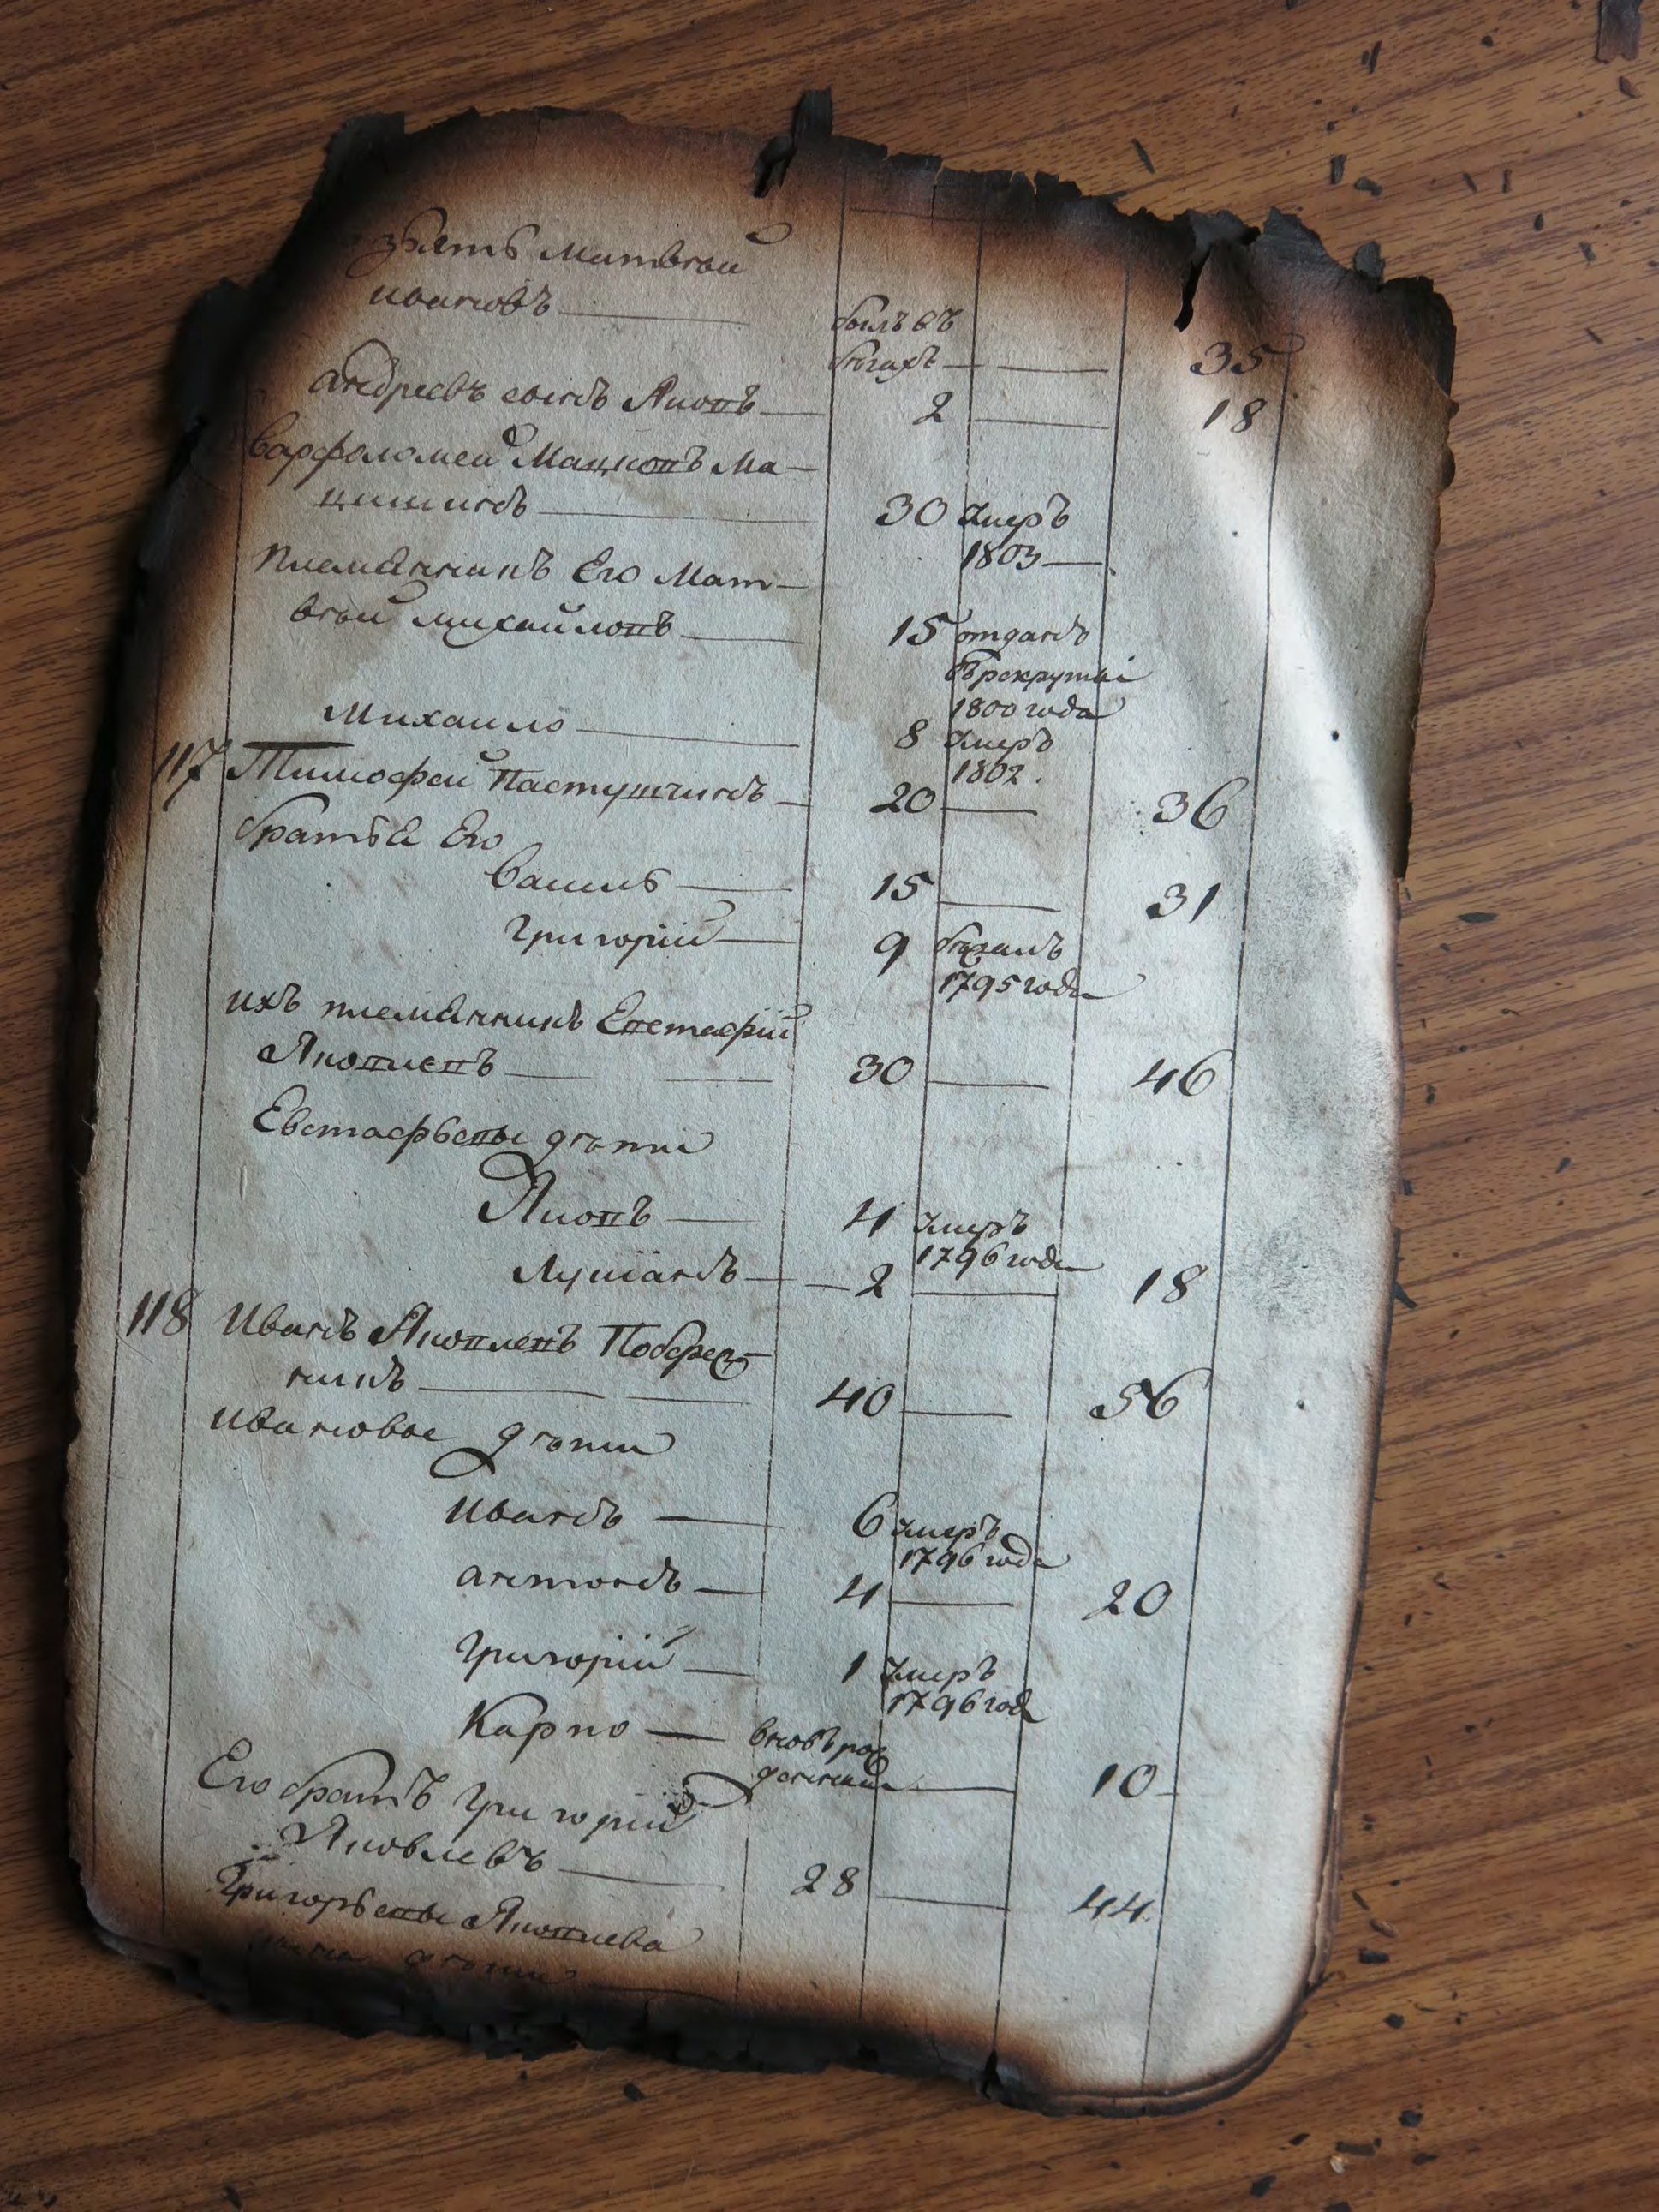 зять Матвѣй
Ивановъ
былъ въ
бѣгахъ 35
Андреевъ сынъ Яковъ 2 18
Варфоломей Мацковъ Ма-
30 умеръ
1803
Племянникъ Его Мат-
вѣй Михайловъ 15 отданъ
въ рекруты
1800 года
Михайло 8 умеръ
1802.
117 Тимофей Пастушчинъ 20 36
братья Его
Василь 15 31
Григорій 9 бѣжалъ
1795 года
ихъ племянникъ Евстафій
Яковлевъ 30 46
Евстафьевы дѣти
Яковъ 4 умеръ
1796 года
Лукіанъ 2 18
118 Иванъ Яковлевъ Побереж-
никъ 40 56
Ивановы дѣти
Иванъ 6 умеръ
1796 года
Антонъ 4 20
Григорій 1 умеръ
1796 года
Карпо вновь рож
денный 10
Его братъ Григорій
Яковлевъ 28 44
Григорьевы Яковлева
дѣти